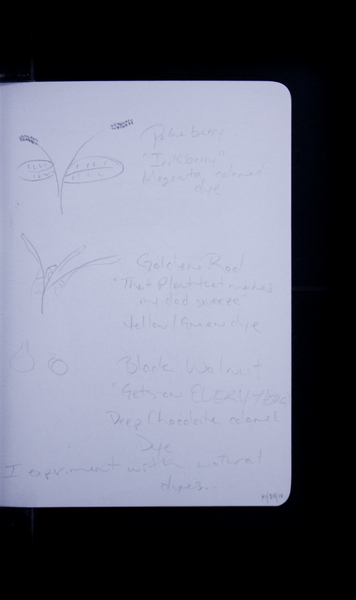 Poke berry
"Inkberry"
Magenta colored
dye
Golden Rod
"That Plant that makes
my dad sneeze
Yellow/Green dye
Black Walnut
"Gets on EVERYTHING
Deep Chocolate colored
Dye
I experiment with natural
dyes...